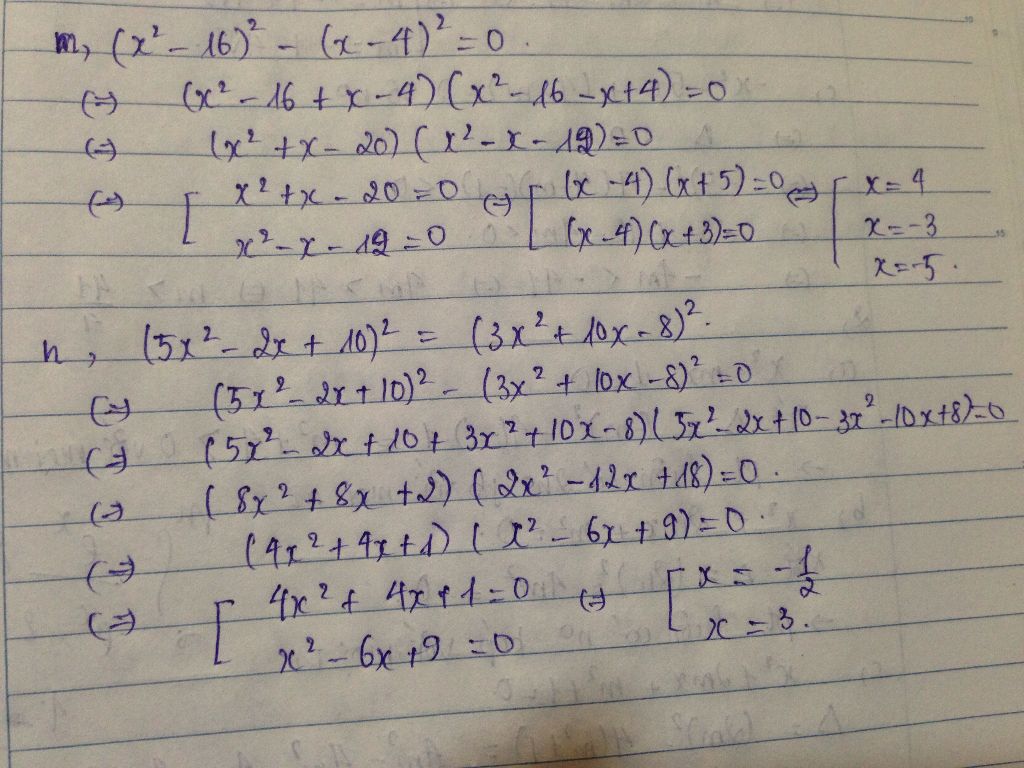 m, (x² - 16)² - (x - 4)² = 0.
(=) (x² - 16 + x - 4) (x² - 16 - x + 4) = 0
(=) (x² + x - 20) (x² - x - 12) = 0
(=) [ x² + x - 20 = 0 (=) [ (x - 4) (x + 5) = 0 (=) [ x = 4
x² - x - 12 = 0 (x - 4) (x + 3) = 0 x = -3
x = -5.
n, (5x² - 2x + 10)² = (3x² + 10x - 8)².
(=) (5x² - 2x + 10)² - (3x² + 10x - 8)² = 0
(=) (5x² - 2x + 10 + 3x² + 10x - 8) (5x² - 2x + 10 - 3x² - 10x + 8) = 0
(=) (8x² + 8x + 2) (2x² - 12x + 18) = 0.
(=) (4x² + 4x + 1) (x² - 6x + 9) = 0.
(=) [ 4x² + 4x + 1 = 0 (=) [ x = -1/2
x² - 6x + 9 = 0 x = 3.